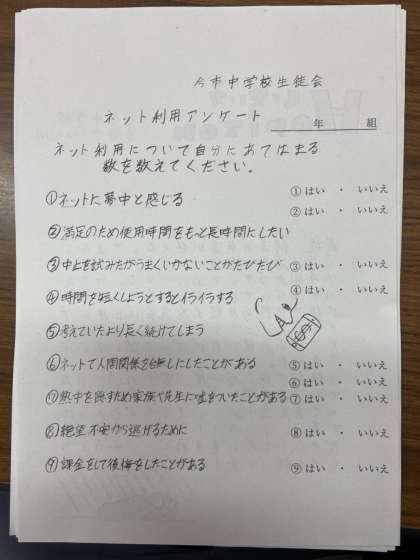 今市中学校生徒会
ネット利用アンケート 年 組
ネット利用について自分にあてはまる
数を数えてください。
①ネットに夢中と感じる ①はい ・ いいえ
②はい ・ いいえ
②満足のため使用時間をもっと長時間にしたい
③中止を試みたがうまくいかないことがたびたび ③はい ・ いいえ
④時間を短くしようとするとイライラする ④はい ・ いいえ
⑤考えていたより長く続けてしまう
⑥ネットで人間関係を台無しにしたことがある ⑤はい ・ いいえ
⑥はい ・ いいえ
⑦熱中を隠すため家族や先生に嘘をついたことがある ⑦はい ・ いいえ
⑧絶望 不安から逃げるために ⑧はい ・ いいえ
⑨課金をして後悔をしたことがある ⑨はい ・ いいえ